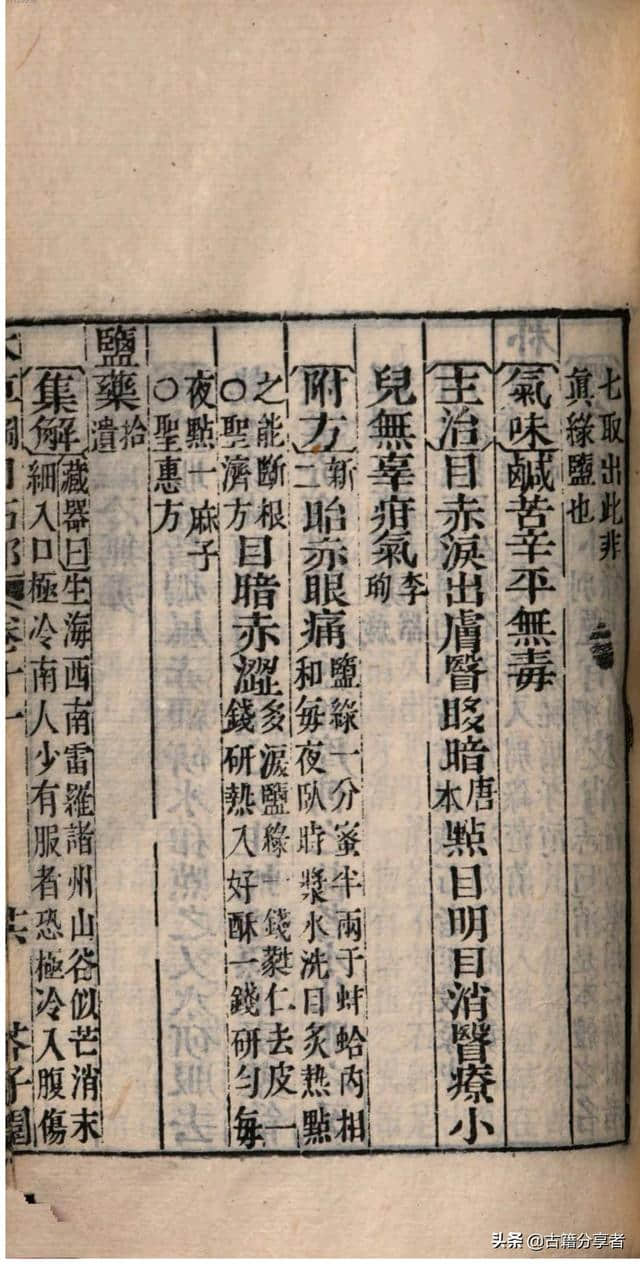 七取出此非
真綠鹽也
氣味鹹苦辛平無毒
主治目赤淚出膚瞖眵暗唐本點目明目消瞖療小
兒無辜疳氣李珣
附方新二眙赤眼痛鹽綠一分蜜半兩于蚌蛤內相
和每夜臥時漿水洗目炙熱點
之能斷根
○聖濟方目暗赤澀多淚鹽綠一錢蕤仁去皮一
錢研熱入好酥一錢研勻每
夜點一麻子
○聖惠方
鹽藥拾遺
集解藏器曰生海西南雷羅諸州山谷似芒消末
細入口極冷南人少有服者恐極冷入腹傷
本草綱目石部卷十一 芥子園
头条 @古籍分享者